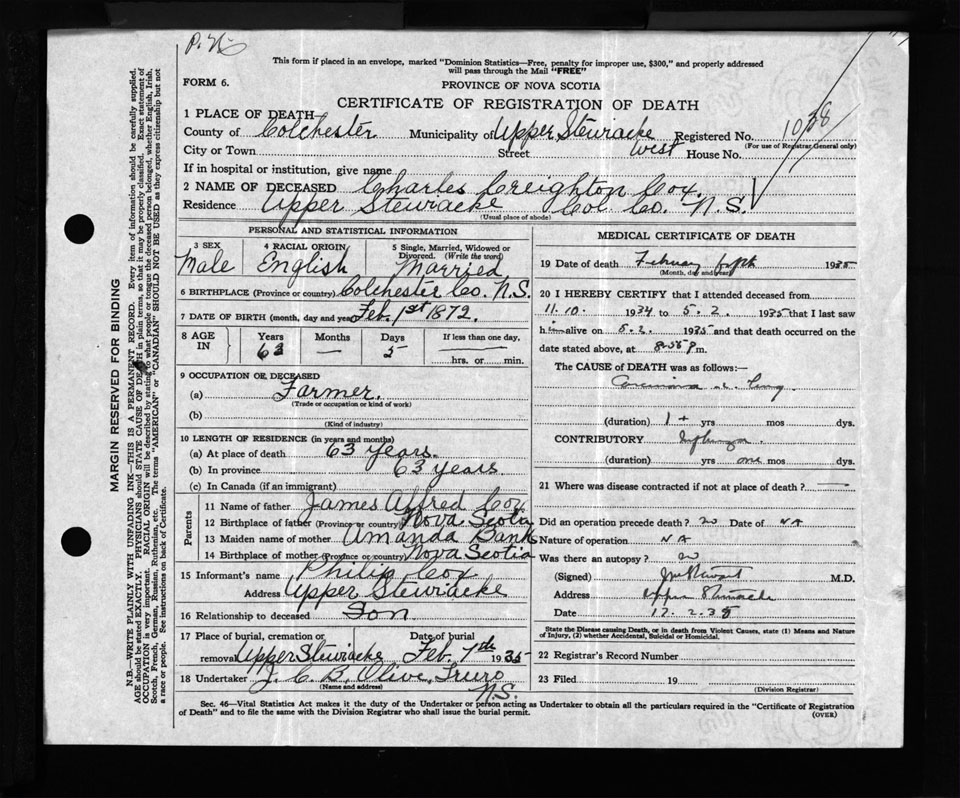 P.N.
This form if placed in an envelope, marked "Dominion Statistics—Free, penalty for improper use, $300," and properly addressed
will pass through the Mail "FREE"
FORM 6.
PROVINCE OF NOVA SCOTIA
CERTIFICATE OF REGISTRATION OF DEATH
1 PLACE OF DEATH
County of Colchester Municipality of Upper Stewiacke West Registered No. 1038
(For use of Registrar General only)
City or Town Street House No.
If in hospital or institution, give name
2 NAME OF DECEASED Charles Creighton Cox.
Residence Upper Stewiacke Col. Co. N.S.
(Usual place of abode)
PERSONAL AND STATISTICAL INFORMATION
3 SEX 4 RACIAL ORIGIN 5 Single, Married, Widowed or Divorced. (Write the word)
Male English Married
6 BIRTHPLACE (Province or country) Colchester Co. N.S.
7 DATE OF BIRTH (month, day and year) Feb. 1st 1872.
8 AGE IN Years Months Days If less than one day,
63 — 5 hrs. or min.
9 OCCUPATION OF DECEASED
(a) Farmer.
(Trade or occupation or kind of work)
(b)
(Kind of industry)
10 LENGTH OF RESIDENCE (in years and months)
(a) At place of death 63 years.
(b) In province 63 years.
(c) In Canada (if an immigrant)
Parents
11 Name of father James Alfred Cox
12 Birthplace of father (Province or country) Nova Scotia
13 Maiden name of mother Amanda Banks
14 Birthplace of mother (Province or country) Nova Scotia
15 Informant's name Philip Cox
Address Upper Stewiacke
16 Relationship to deceased Son
17 Place of burial, cremation or removal Upper Stewiacke Date of burial Feb. 7th 1935
18 Undertaker J. C. B. Olive, Truro N.S.
(Name and address)
MEDICAL CERTIFICATE OF DEATH
19 Date of death February 1935
(Month, day and year)
20 I HEREBY CERTIFY that I attended deceased from
11.10. 1934 to 5.2. 1935 that I last saw
him alive on 5.2. 1935 and that death occurred on the
date stated above, at 8.55 P m.
The CAUSE of DEATH was as follows:—
Carcinoma of lung
(duration) 1 + yrs mos dys.
CONTRIBUTORY
(duration) yrs one mos dys.
21 Where was disease contracted if not at place of death? —
Did an operation precede death? no Date of NA
Nature of operation NA
Was there an autopsy? no
(Signed) M.D.
Address Upper Stewiacke
Date 12.2.35
State the Disease causing Death, or in death from Violent Causes, state (1) Means and Nature
of Injury, (2) whether Accidental, Suicidal or Homicidal.
22 Registrar's Record Number
23 Filed 19
(Division Registrar)
Sec. 46—Vital Statistics Act makes it the duty of the Undertaker or person acting as Undertaker to obtain all the particulars required in the "Certificate of Registration
of Death" and to file the same with the Division Registrar who shall issue the burial permit.
(OVER)
MARGIN RESERVED FOR BINDING
N.B.—WRITE PLAINLY WITH UNFADING INK—THIS IS A PERMANENT RECORD. Every item of information should be carefully supplied.
AGE should be stated EXACTLY. PHYSICIANS should STATE CAUSE OF DEATH in plain terms, so that it may be properly classified. Exact statement of
OCCUPATION is very important. RACIAL ORIGIN will be described by stating to what people or tongue the deceased person belonged, whether English, Irish,
Scotch, French, German, Russian, Ruthenian, etc. The terms "AMERICAN" or "CANADIAN" SHOULD NOT BE USED as they express citizenship but not
a race or people. See instructions on back of Certificate.